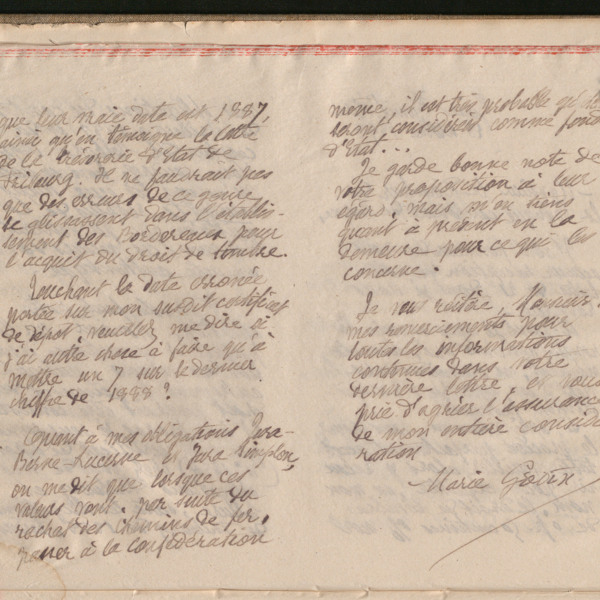 que leur vraie date est 1887,
ainsi qu'en témoigne la lettre
de la trésorerie d'Etat de
Fribourg. Il ne faudrait pas
que des erreurs de ce genre
se glissassent dans l'établis-
sement des Bordereaux pour
l'acquit du droit de timbre.
Touchant la date erronée
portée sur mon susdit certificat
de dépôt veuillez me dire si
j'ai autre chose à faire qu'à
mettre un 7 sur le dernier
chiffre de 1888?
Quant à mes obligations Jura-
Berne-Lucerne et Jura Simplon,
on me dit que lorsque ces
valeurs vont, par suite du
rachat des chemins de fer,
passer à la confédération
même, il est très probable qu'
seront considérés comme fonds
d'Etat...
Je garde bonne note de
votre proposition à leur
égard, mais m'en tiens
quant à présent en la
demeure pour ce qui les
concerne.
Je vous réitère, Monsieur
mes remerciements pour
toutes les informations
contenues dans votre
dernière lettre, et vous
prie d'agréer l'assurance
de mon entière considé
ration
Marie